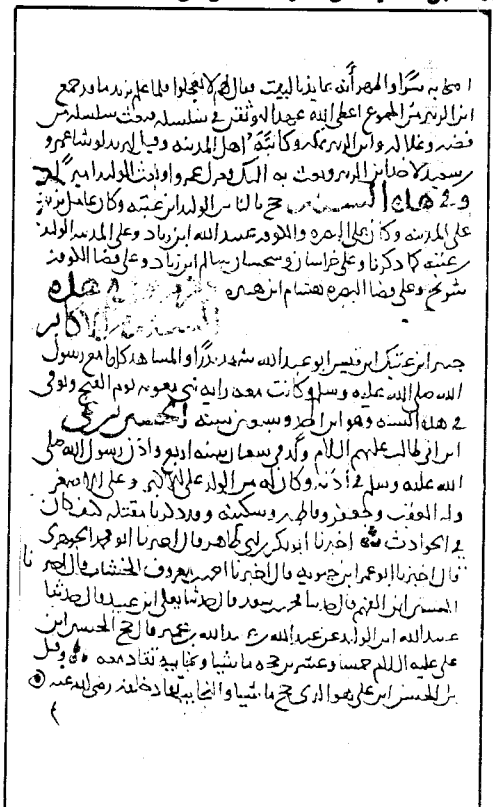 به سرا والمهر أنه عايذ بالبيت فقال لهم لا تعجلوا فلما علم يزيد ما قد جمع
ابن الزبير من الجموع اعطى الله عهدا ليوثقن في سلسلة فبعث سلسلة من
فضه وابن الزبير بمكة وكاتبه اهل المدينه وقيل ليزيد لو شا عمرو
بن سعيد لاخذ ابن الزبير وبعث به اليك فعزل عمرو الوليد
وفي هذه السنة حج بالناس الوليد ابن عتبه وكان عامل يزيد
على المدينه وكان على البصره والكوفه عبيد الله ابن زياد وعلى المدينه الوليد
بن عتبه كما ذكرنا وعلى خراسان وسجستان سالم ابن زياد وعلى قضا الكوفه
شريح وعلى قضا البصره هشام ابن هبيره هذه
السنة من الاكابر
ابن عتيك ابن قيس ابو عبد الله شهد بدرا والمشاهد كلها مع رسول
الله صلى الله عليه وسلم وكانت معه رايه بني معويه يوم الفتح وتوفي
في هذه السنه وهو ابن احد وسبعين سنه الحسين بن علي
ابن ابي طالب عليهم السلام ولد في شعبان سنه اربع واذن رسول الله صلى
الله عليه وسلم في أذنه وكان له من الولد علي الاكبر وعلي الاصغر
وله العقب وجعفر وفاطمه وسكينه وقد ذكرنا مقتله كيف كان
في الحوادث اخبرنا ابو بكر بن ابي طاهر قال اخبرنا ابو محمد الجوهري
قال اخبرنا ابو عمر ابن حيويه قال اخبرنا احمد بن معروف الخشاب قال اخبرنا
الحسين ابن الفهم قال حدثنا محمد بن سعد قال حدثنا يعلى ابن عبيد قال حدثنا
عبيد الله ابن الوليد عن عبد الله بن عبيد الله بن عمير قال حج الحسين ابن
علي عليه السلام خمسا وعشرين حجه ماشيا ونجايبه تقاد معه وقيل
بل الحسن ابن علي هو الذي حج ماشيا والنجايب تقاد خلفه رضي الله عنه